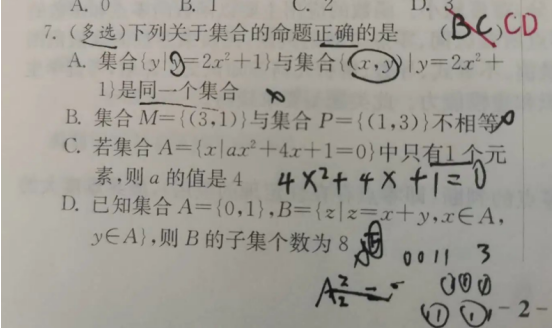 A. 0 B. 1 C. 2 D. 3
7. (多选)下列关于集合的命题正确的是 (BC) CD
A. 集合{y|y=2x²+1}与集合{(x,y)|y=2x²+
1}是同一个集合
B. 集合 M={(3,1)}与集合 P={(1,3)}不相等
C. 若集合 A={x|ax²+4x+1=0}中只有1个元
素,则 a 的值是 4 4x²+4x+1=0
D. 已知集合 A={0,1},B={z|z=x+y,x∈A,
y∈A},则 B 的子集个数为 8
0 0 1 1 3
-2-